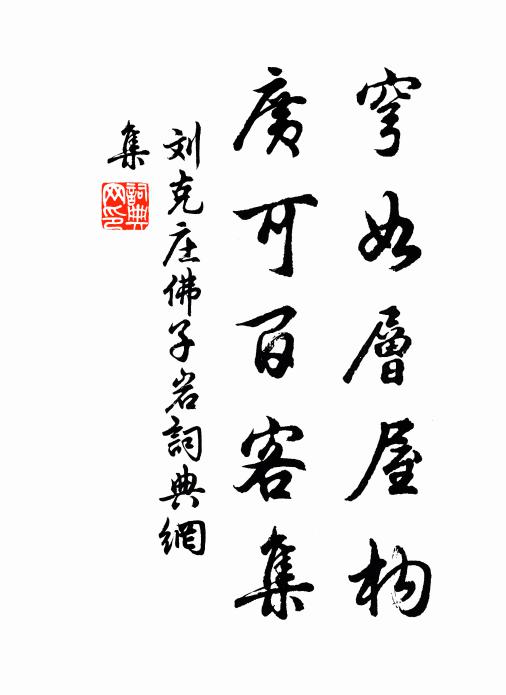 穹如層屋构
廣可百客集
刘克庄佛子岩詞典網
集
詞典网印